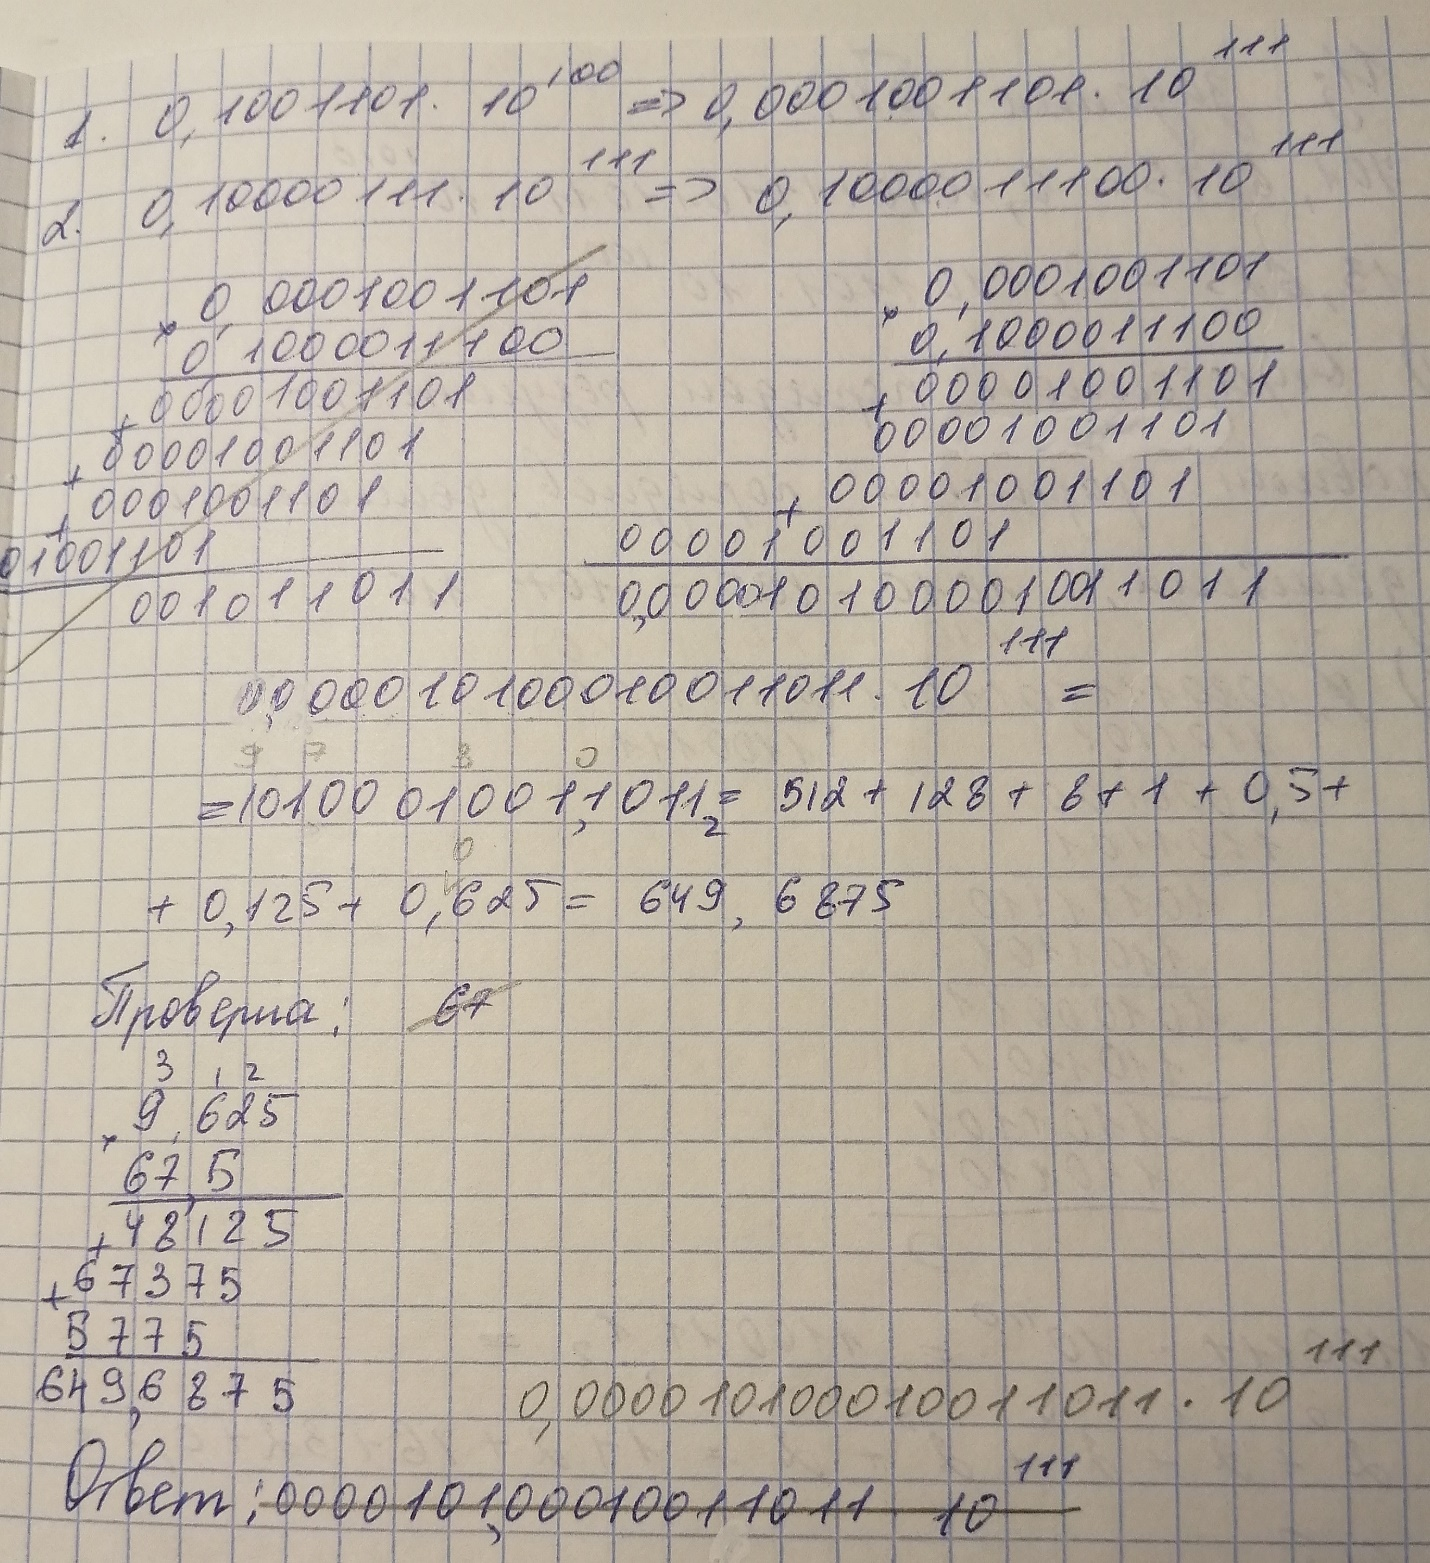 1. 0,1001101 · 10^100 => 0,0001001101 · 10^111
2. 0,10000111 · 10^111 => 0,1000011100 · 10^111
× 0,0001001101
0,1000011100
+ 00001001101
+ 00001001101
+ 0001001101
01001101
001011011
× 0,0001001101
0,1000011100
+ 00001001101
00001001101
+ 00001001101
00001001101
0,0000101000010011011
0,0000101000010011011 · 10^111 =
9 7 3 0
= 1010001001,1011₂ = 512 + 128 + 8 + 1 + 0,5 +
0
+ 0,125 + 0,625 = 649,6875
Проверка: 67
3 1 2
× 9,625
67,5
+ 48125
+ 67375
5775
649,6875
0,000010100010011011 · 10^111
Ответ: 0000101,00010011011 10^111